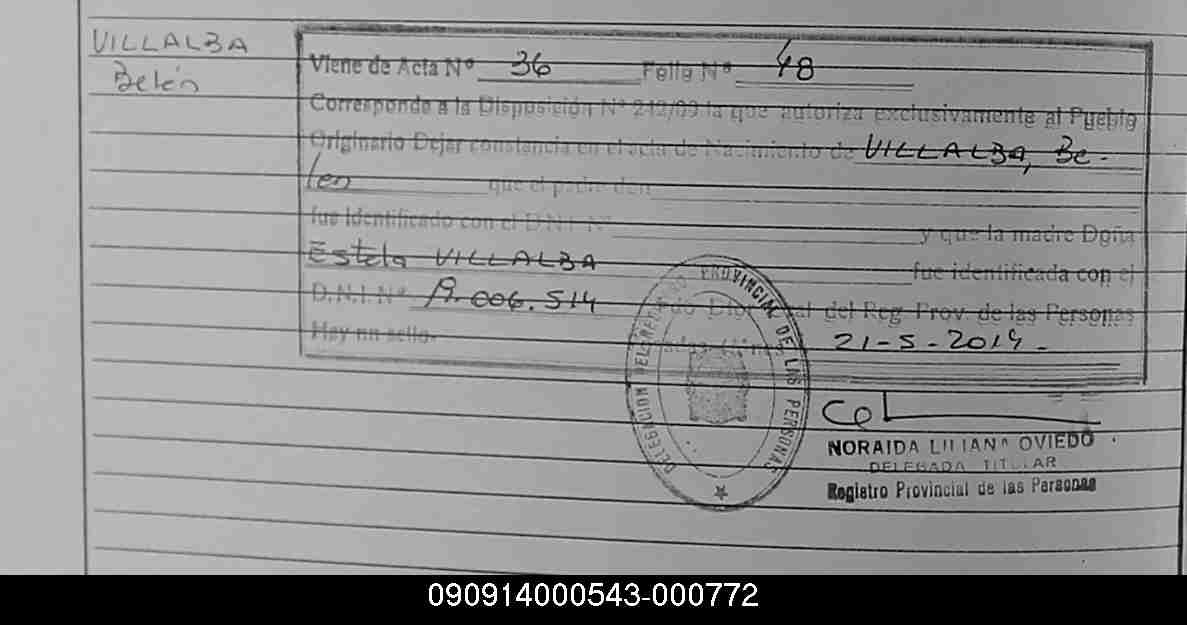 VILLALBA
Belén
Viene de Acta Nº 36 Folio Nº 48
Corresponde a la Disposición Nº 242/09 la que autoriza exclusivamente al Pueblo
Originario Dejar constancia en el acta de Nacimiento de VILLALBA, Be-
len que el padre don
fue identificado con el D.N.I. Nº y que la madre Doña
Estela VILLALBA fue identificada con el
D.N.I. Nº 19.006.514 del Reg. Prov. de las Personas
Hay un sello. 21-5-2014.-
DELEGACION PROVINCIAL DE LAS PERSONAS
NORAIDA LILIANA OVIEDO
DELEGADA TITULAR
Registro Provincial de las Personas
090914000543-000772